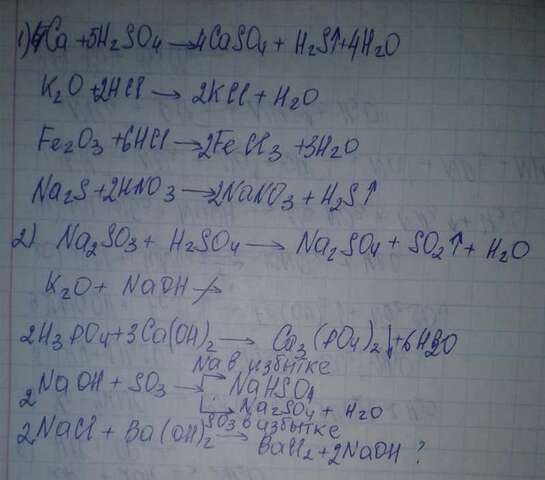 1) 4Ca + 5H₂SO₄ → 4CaSO₄ + H₂S↑ + 4H₂O
K₂O + 2HCl → 2KCl + H₂O
Fe₂O₃ + 6HCl → 2FeCl₃ + 3H₂O
Na₂S + 2HNO₃ → 2NaNO₃ + H₂S↑
2) Na₂SO₃ + H₂SO₄ → Na₂SO₄ + SO₂↑ + H₂O
K₂O + NaOH ↛
2H₃PO₄ + 3Ca(OH)₂ → Ca₃(PO₄)₂↓ + 6H₂O
Na в избытке
2NaOH + SO₃ → NaHSO₄
→ Na₂SO₄ + H₂O
SO₃ в избытке
2NaCl + Ba(OH)₂ → BaCl₂ + 2NaOH ?